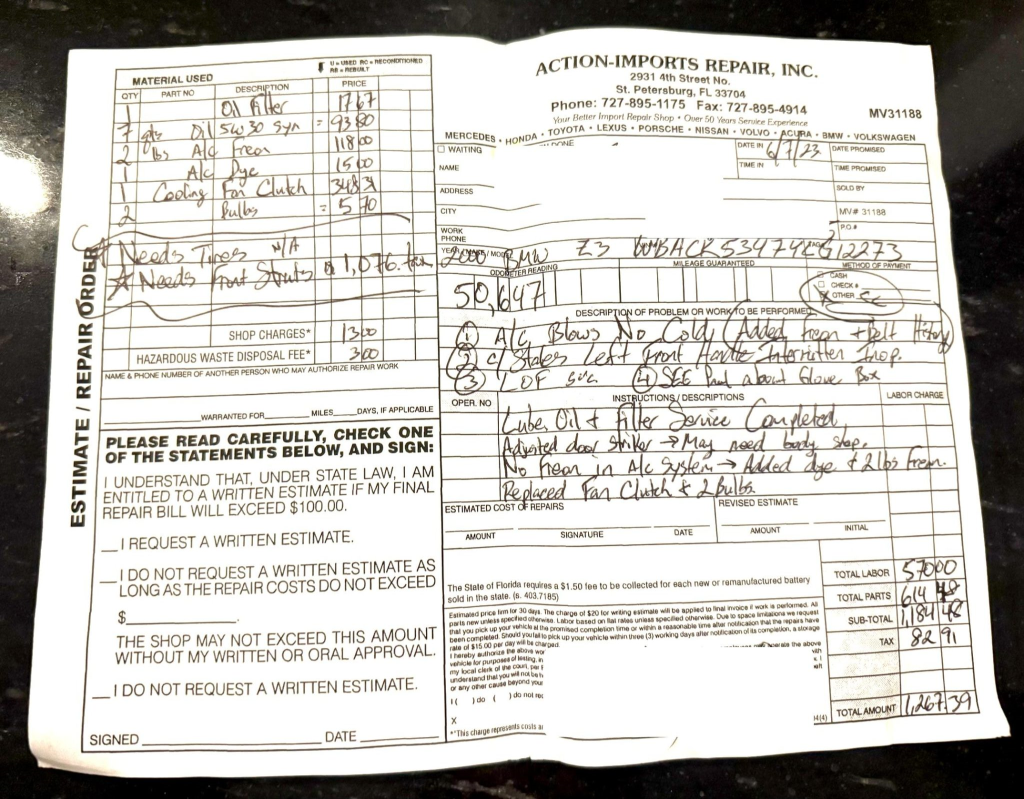 ESTIMATE / REPAIR ORDER
U = USED RC = RECONDITIONED
RB = REBUILT
MATERIAL USED
QTY PART NO DESCRIPTION PRICE
1 Oil Filter 17 67
7 qts Oil 5W30 Syn = 93 80
2 lbs A/c Freon 118 00
1 A/c Dye 15 00
1 Cooling Fan Clutch 348 31
2 Bulbs = 5 70
Needs Tires N/A
Needs Front Struts $1,076.
SHOP CHARGES* 13 00
HAZARDOUS WASTE DISPOSAL FEE* 3 00
NAME & PHONE NUMBER OF ANOTHER PERSON WHO MAY AUTHORIZE REPAIR WORK
WARRANTED FOR____MILES____DAYS, IF APPLICABLE
PLEASE READ CAREFULLY, CHECK ONE
OF THE STATEMENTS BELOW, AND SIGN:
I UNDERSTAND THAT, UNDER STATE LAW, I AM
ENTITLED TO A WRITTEN ESTIMATE IF MY FINAL
REPAIR BILL WILL EXCEED $100.00.
__I REQUEST A WRITTEN ESTIMATE.
__I DO NOT REQUEST A WRITTEN ESTIMATE AS
LONG AS THE REPAIR COSTS DO NOT EXCEED
$____________.
THE SHOP MAY NOT EXCEED THIS AMOUNT
WITHOUT MY WRITTEN OR ORAL APPROVAL.
__I DO NOT REQUEST A WRITTEN ESTIMATE.
SIGNED____________ DATE______
ACTION-IMPORTS REPAIR, INC.
2931 4th Street No.
St. Petersburg, FL 33704
Phone: 727-895-1175 Fax: 727-895-4914
Your Better Import Repair Shop • Over 50 Years Service Experience
MV31188
MERCEDES • HONDA • TOYOTA • LEXUS • PORSCHE • NISSAN • VOLVO • ACURA • BMW • VOLKSWAGEN
WAITING DATE IN 6/7/23 DATE PROMISED
NAME TIME IN TIME PROMISED
ADDRESS SOLD BY
CITY MV# 31188
WORK PHONE P.O.#
BMW Z3
ODOMETER READING MILEAGE GUARANTEED METHOD OF PAYMENT
50,647
CASH
CHECK #
OTHER CC
DESCRIPTION OF PROBLEM OR WORK TO BE PERFORMED
1 A/c Blows No Cold (Added Freon + Belt History)
2 c/ States Left Front Handle Intermitten Inop.
3 LOF 4 SEE Paul about Glove Box
OPER. NO INSTRUCTIONS/DESCRIPTIONS LABOR CHARGE
Lube, Oil & Filter Service Completed
Adjusted door striker → May need body shop.
No Freon in A/c System → Added dye & 2 lbs Freon.
Replaced Fan Clutch & 2 Bulbs
ESTIMATED COST OF REPAIRS REVISED ESTIMATE
AMOUNT SIGNATURE DATE AMOUNT INITIAL
The State of Florida requires a $1.50 fee to be collected for each new or remanufactured battery
sold in the state. (s. 403.7185)
Estimated price firm for 30 days. The charge of $20 for writing estimate will be applied to final invoice if work is performed. All
parts new unless specified otherwise. Labor based on flat rates unless specified otherwise. Due to space limitations we request
that you pick up your vehicle at the promised completion time or within a reasonable time after notification that the repairs have
been completed. Should you fail to pick up your vehicle within three (3) working days after notification of its completion, a storage
rate of $15.00 per day will be charged.
I hereby authorize the above wor
vehicle for purposes of testing, in
my local clerk of the court, per F
understand that you will not be h
or any other cause beyond your
I ( ) do ( ) do not rec
X
*"This charge represents costs ar
TOTAL LABOR 570 00
TOTAL PARTS 614 48
SUB-TOTAL 1,184 48
TAX 82 91
TOTAL AMOUNT 1,267.39